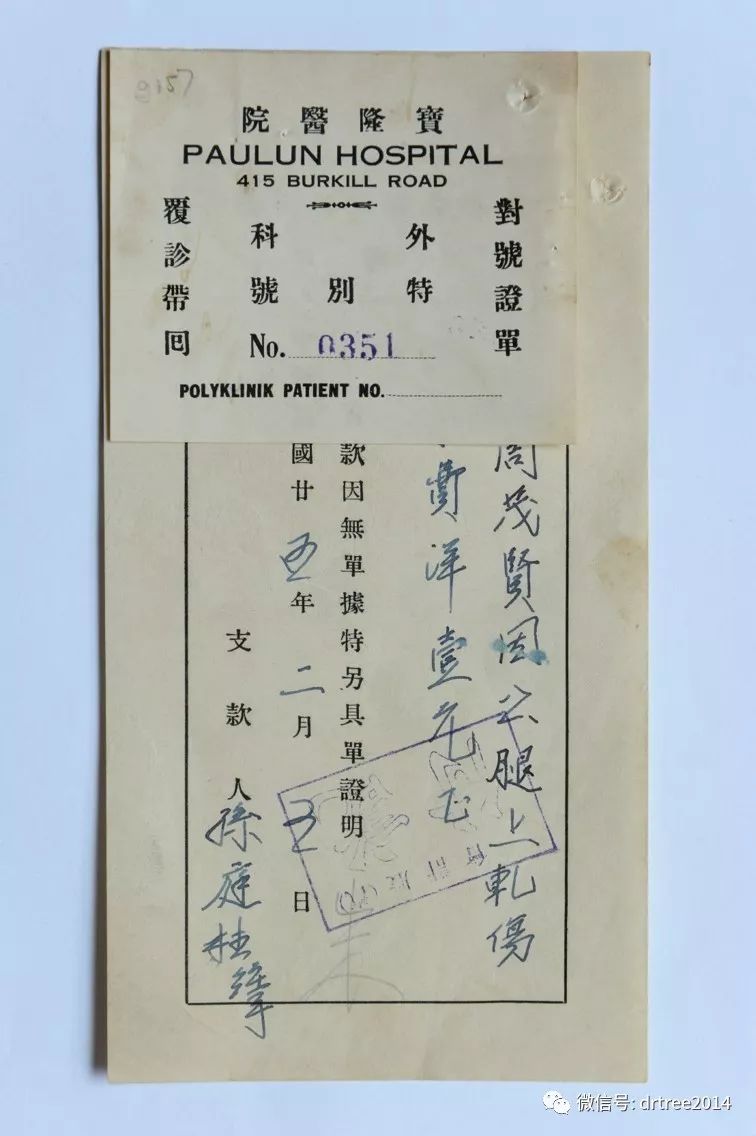 9157
院醫隆寶
PAULUN HOSPITAL
415 BURKILL ROAD
對號證單
外科
特別號
覆診帶囘
No. 0351
POLYKLINIK PATIENT NO.
周茂賢因公腿上軋傷
費洋壹元正
款因無單據特另具單證明
國廿五年二月五日
支款人 孫庭桂
微信号: drtree2014